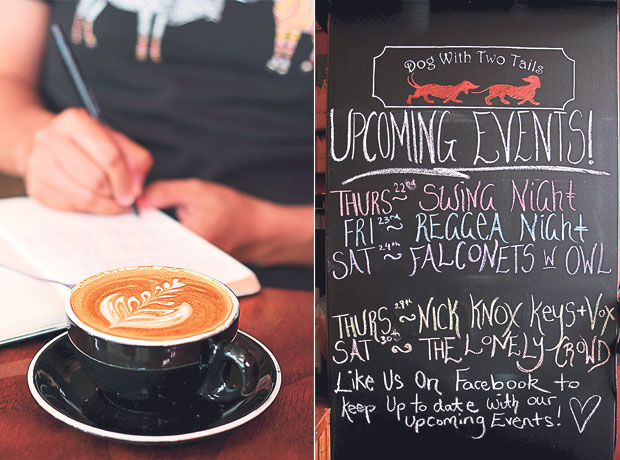 Dog With Two Tails
UPCOMING EVENTS!
THURS 22nd ~ SWING NIGHT
FRI 23rd ~ REGGEA NIGHT
SAT 24th ~ FALCONETS w OWL
THURS 29th ~ NICK KNOX KEYS+VOX
SAT 30th ~ THE LONELY CROWD
Like Us On Facebook to
keep Up to date with our
upcoming Events! ♡